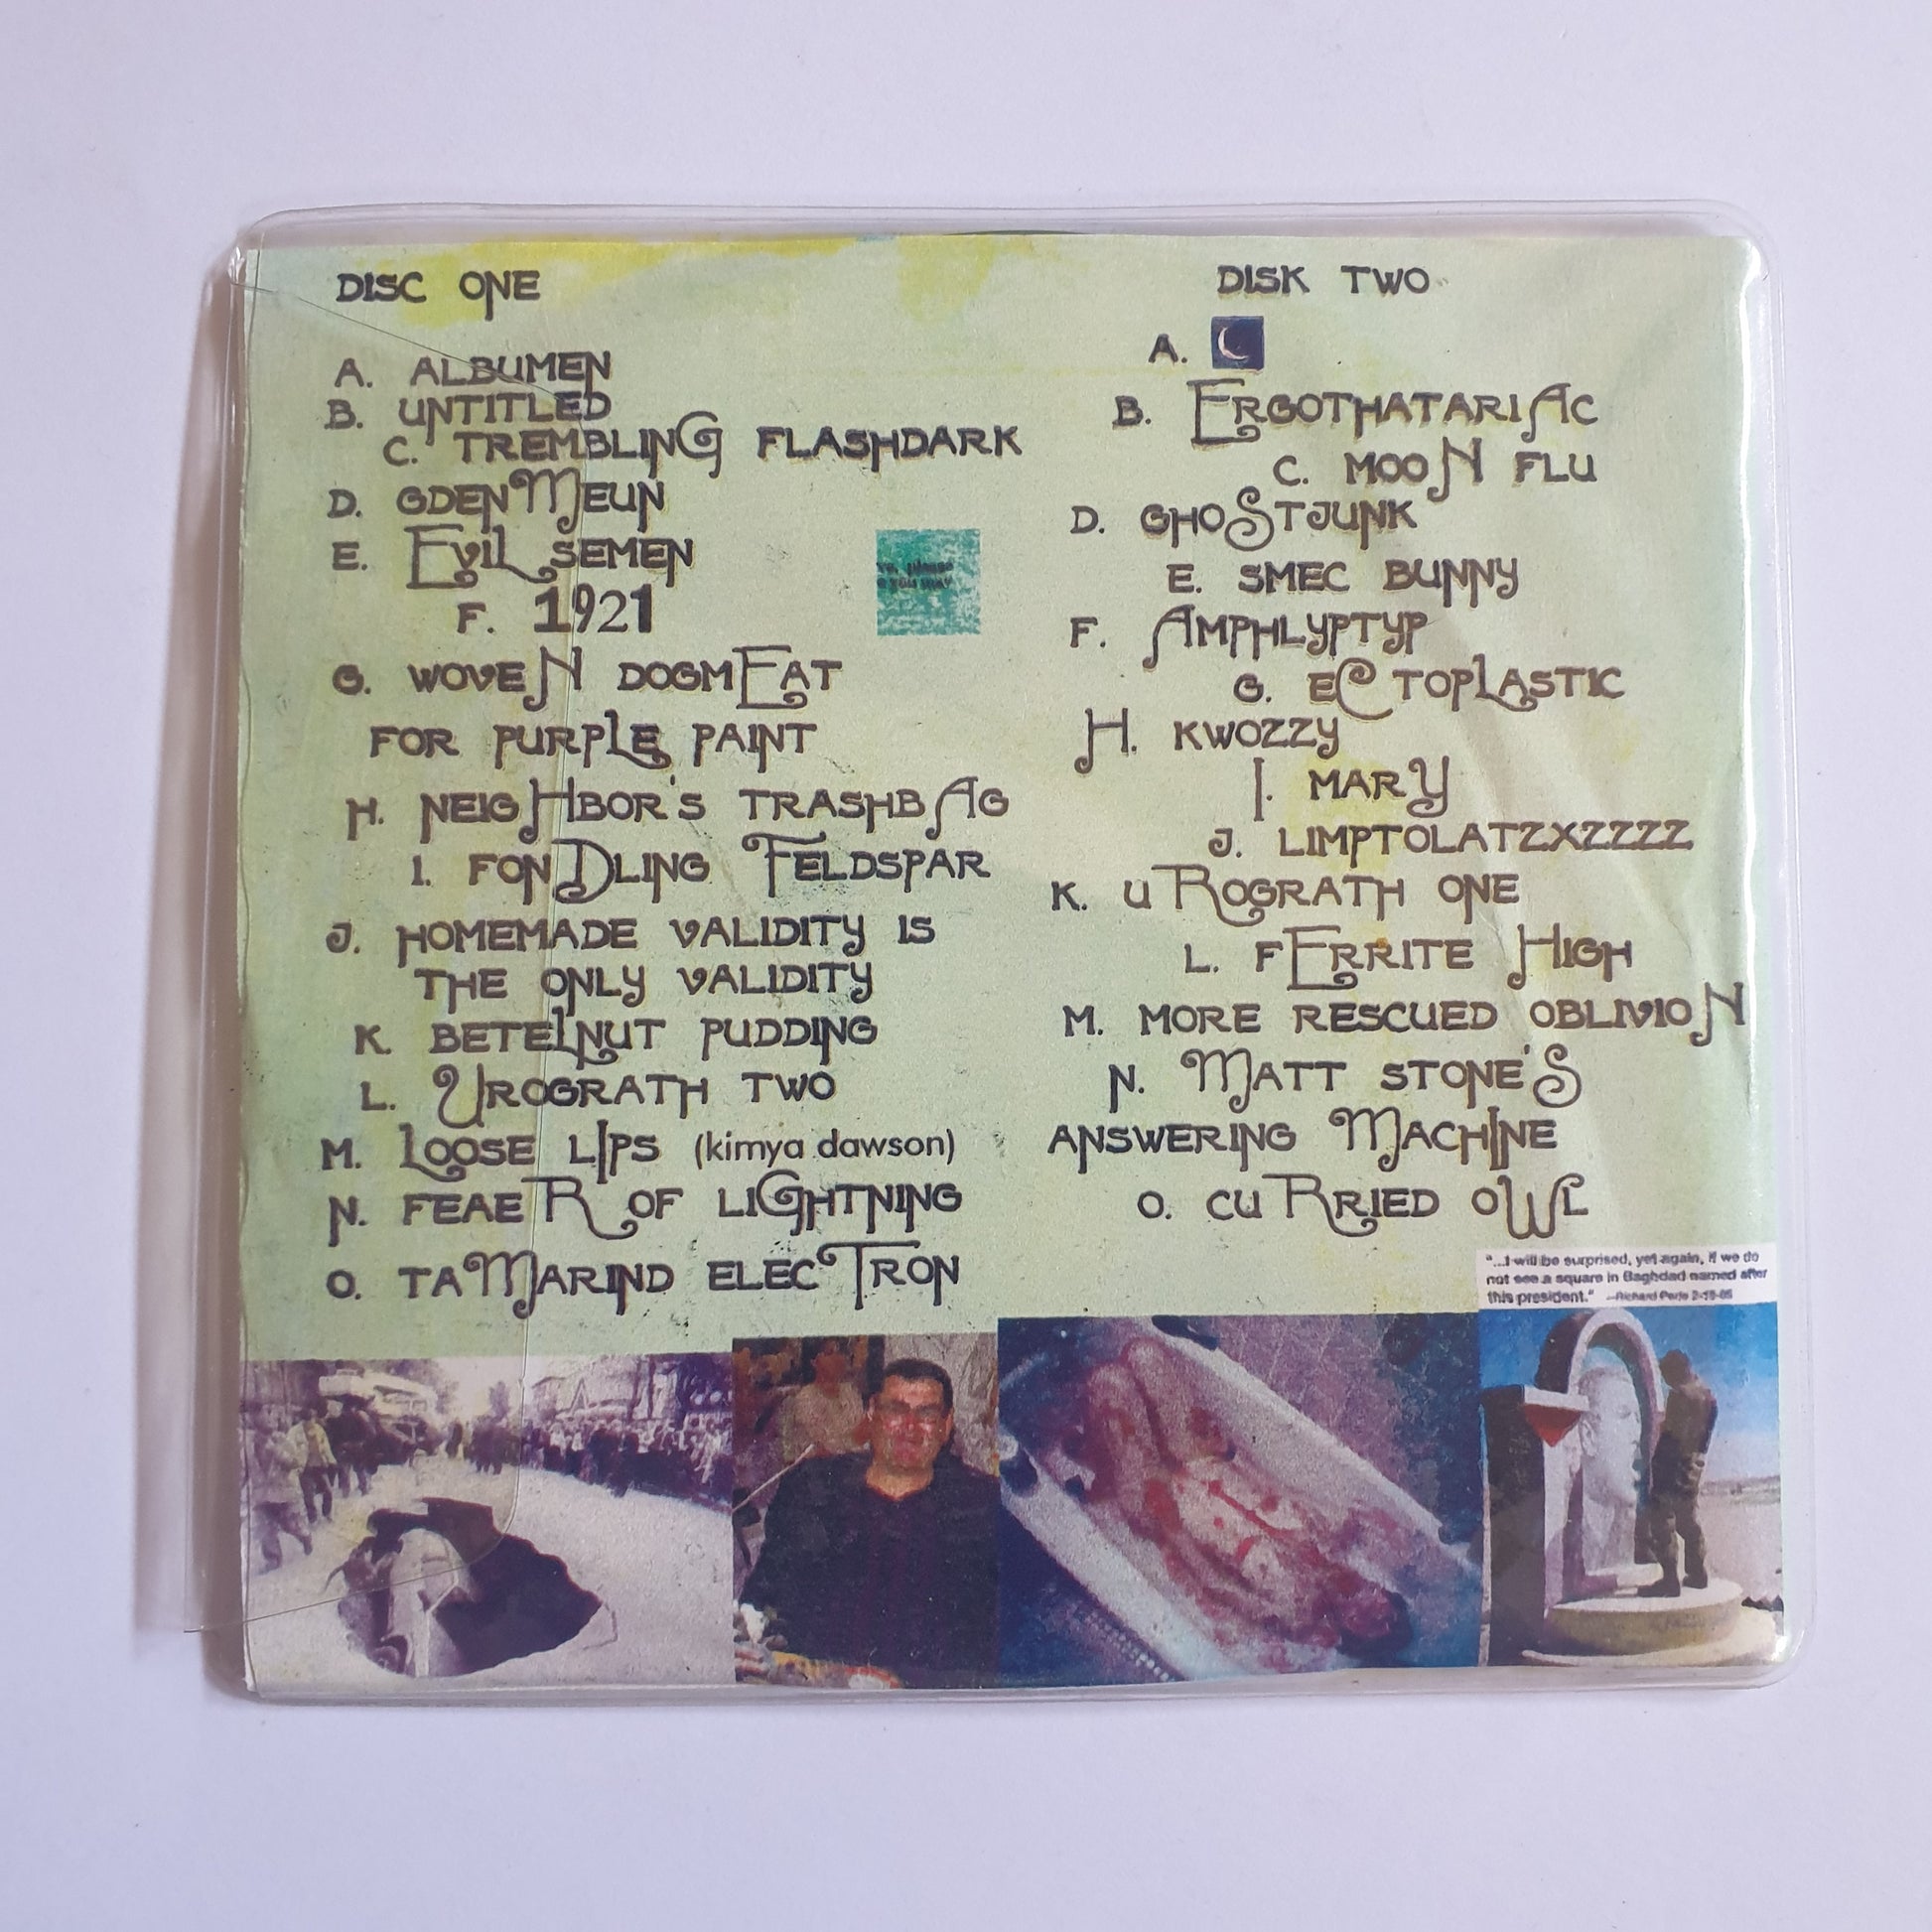 DISC ONE
A. ALBUMEN
B. UNTITLED
C. TREMBLING FLASHDARK
D. GDENMEUN
E. EVIL SEMEN
F. 1921
G. WOVEN DOGMEAT
FOR PURPLE PAINT
H. NEIGHBOR'S TRASHBAG
I. FONDLING FELDSPAR
J. HOMEMADE VALIDITY IS
THE ONLY VALIDITY
K. BETELNUT PUDDING
L. UROGRATH TWO
M. LOOSE LIPS (kimya dawson)
N. FEAER OF LIGHTNING
O. TAMARIND ELECTRON
please
you may
DISK TWO
A.
B. ERGOTHATARIAC
C. MOON FLU
D. GHOSTJUNK
E. SMEC BUNNY
F. AMPHLYPTYP
G. ECTOPLASTIC
H. KWOZZY
I. MARY
J. LIMPTOLATZXZZZZ
K. UROGRATH ONE
L. FERRITE HIGH
M. MORE RESCUED OBLIVION
N. MATT STONE'S
ANSWERING MACHINE
O. CURRIED OWL
"...I will be surprised, yet again, if we do
not see a square in Baghdad named after
this president." —Richard Perle